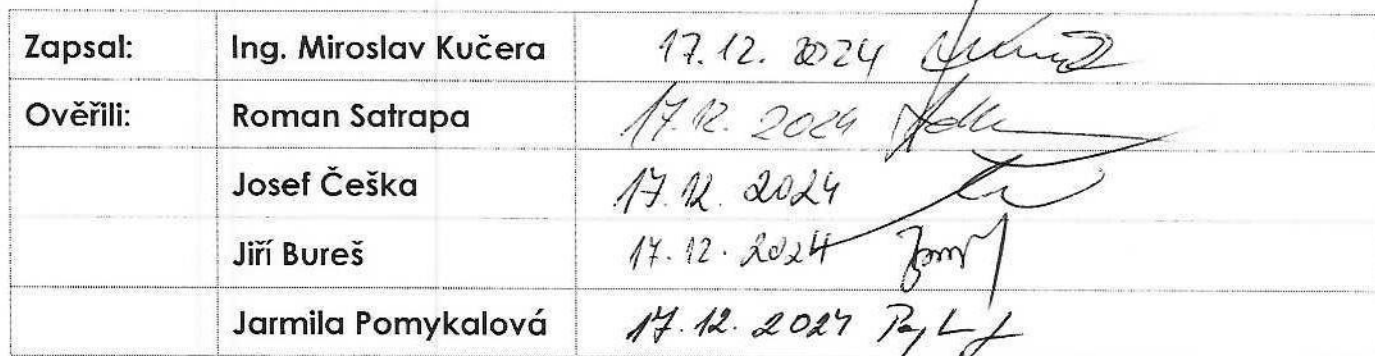 Zapsal: Ing. Miroslav Kučera 17.12. 2024
Ověřili: Roman Satrapa 17.12. 2024
Josef Češka 17.12. 2024
Jiří Bureš 17.12.2024
Jarmila Pomykalová 17.12.2024